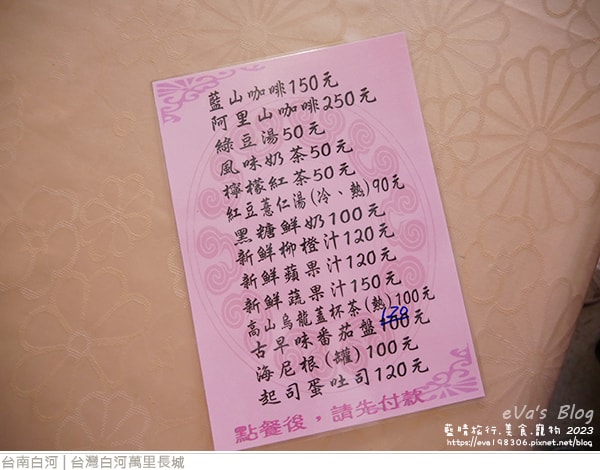 藍山咖啡150元
阿里山咖啡250元
綠豆湯50元
風味奶茶50元
檸檬紅茶50元
紅豆薏仁湯(冷、熱)90元
黑糖鮮奶100元
新鮮柳橙汁120元
新鮮蘋果汁120元
新鮮蔬果汁150元
高山烏龍蓋杯茶(熱)100元
古早味番茄盤100元
120
海尼根(罐)100元
起司蛋吐司120元
點餐後，請先付款
eVa's Blog
藍晴旅行.美食.寵物 2023
https://eva198306.pixnet.net/blog
台南白河 | 台灣白河萬里長城